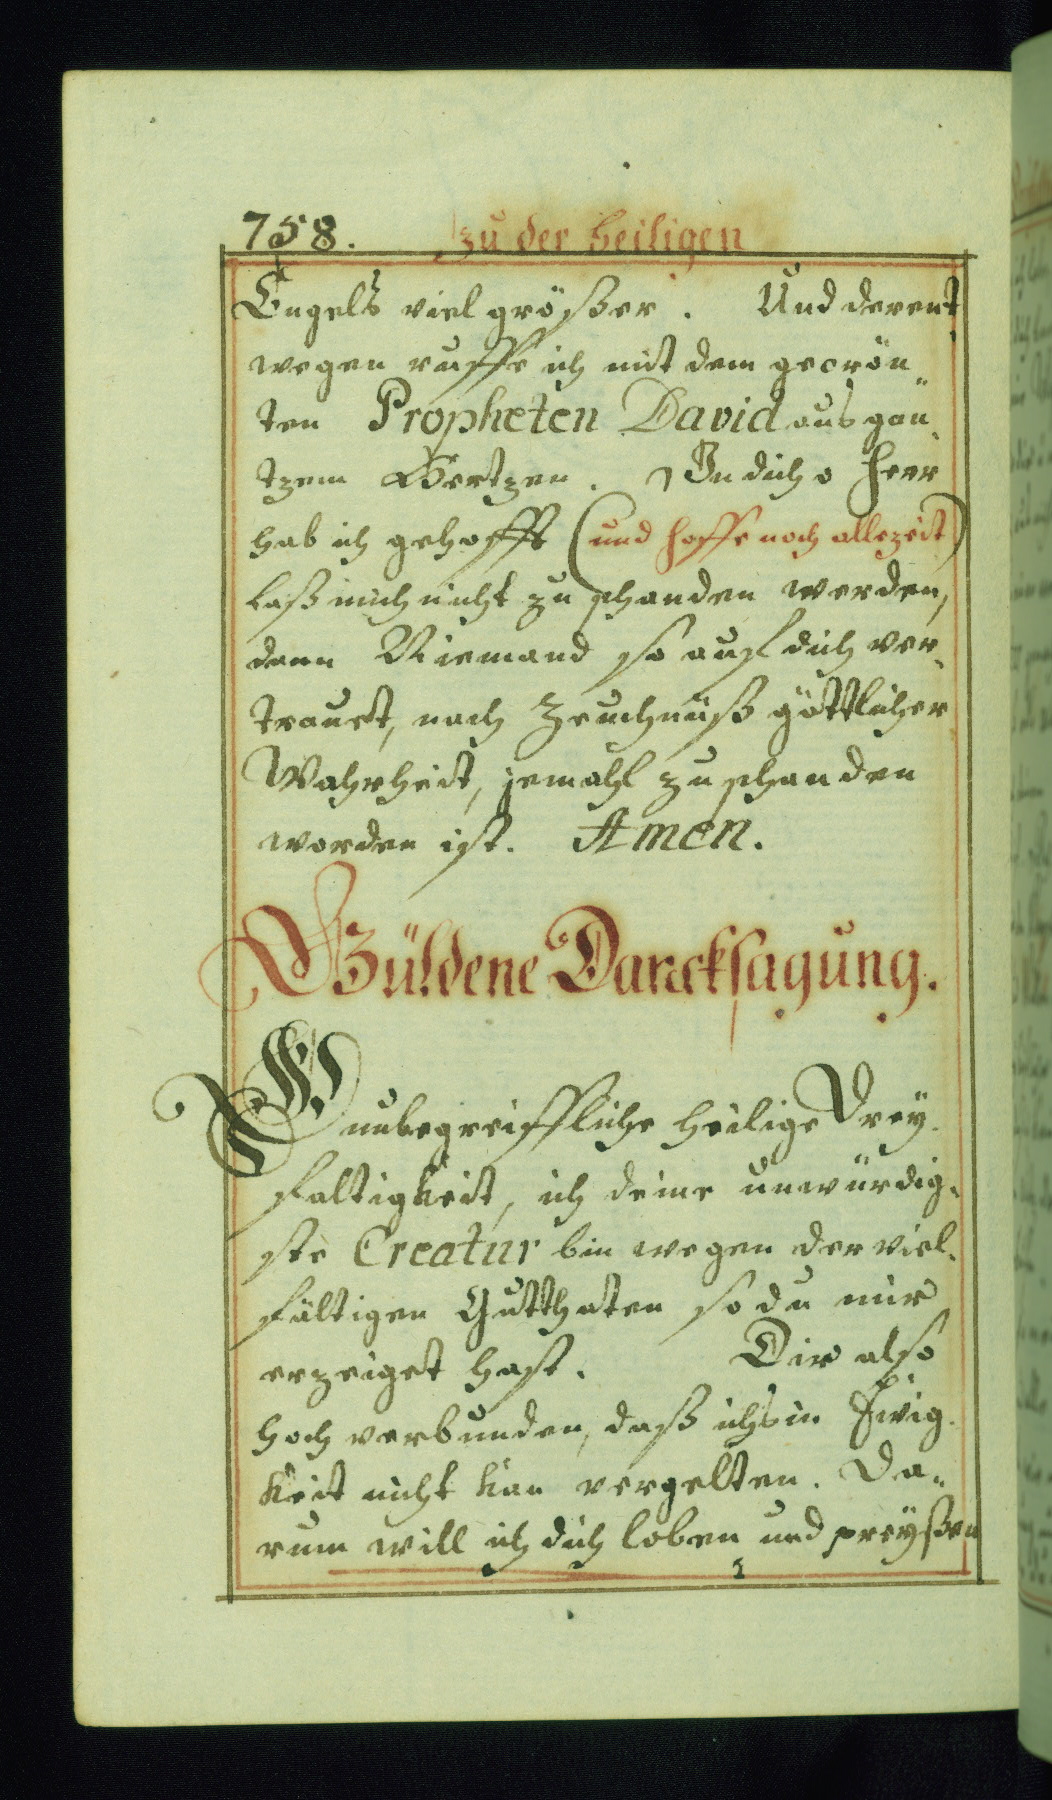 758. zu der heiligen
Engels viel größer. Und derent
wegen ruffe ich mit dem gecrön„
ten Propheten David aus gan„
tzem Hertzen. In dich o Herr
hab ich gehofft (und hoffe noch allezeit)
laß mich nicht zu schanden werden,
dann Niemand so auf dich ver„
trauet, nach Zeuchnüß göttlicher
Wahrheit, jemahl zu schanden
worden ist. Amen.
Güldene Dancksagung.
O unbegreiffliche heilige Drey„
faltigkeit, ich deine unwürdig„
ste Creatur bin wegen der viel„
fältigen Gutthaten so du mir
erzeiget hast. Dir also
hoch verbunden, daß ichs in Ewig„
keit nicht kan vergelten. Da„
rum will ich dich loben und preyßen